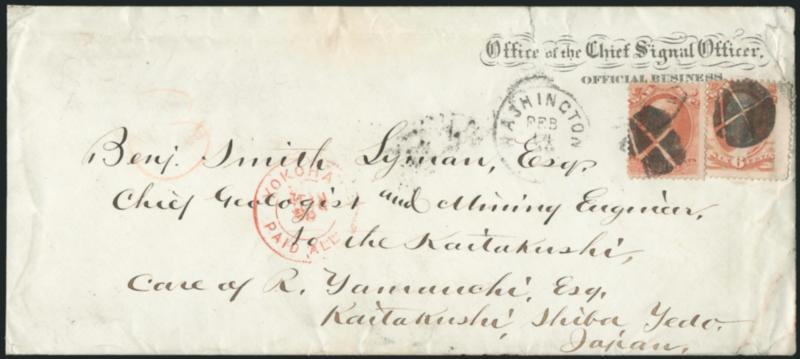 Office of the Chief Signal Officer,
OFFICIAL BUSINESS
WASHINGTON
FEB
Benj. Smith Lyman, Esq.
Chief Geologist and Mining Engineer,
to the Kaitakushi,
Care of R. Yamauchi, Esq.
Kaitakushi, Shiba, Yedo.
Japan.
YOKOHA
PAID ALL